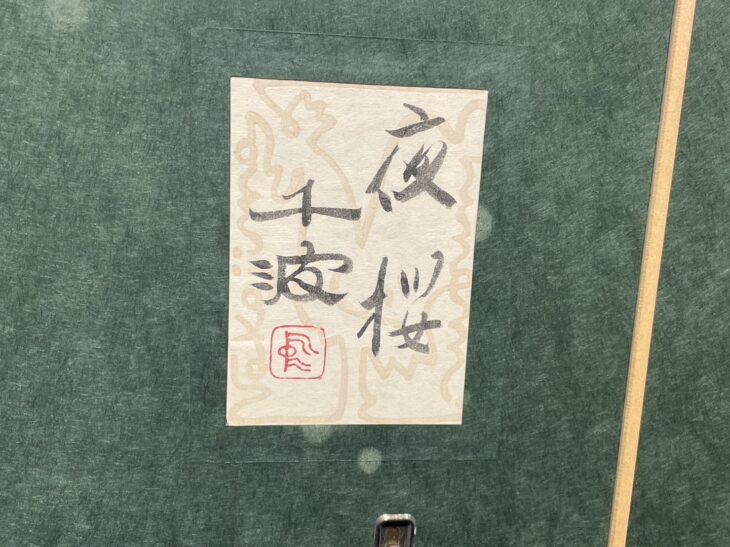 夜桜
千波